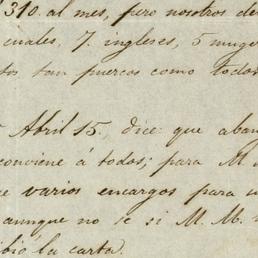 310. al mes, pero nosotros de
cuales, 7. ingleses, 5 muge
tos tan puercos como todos
Abril 15., dice: que aban
conviene á todos; para M. M
varios encargos para u
aunque no se si M. M.
bió la carta.